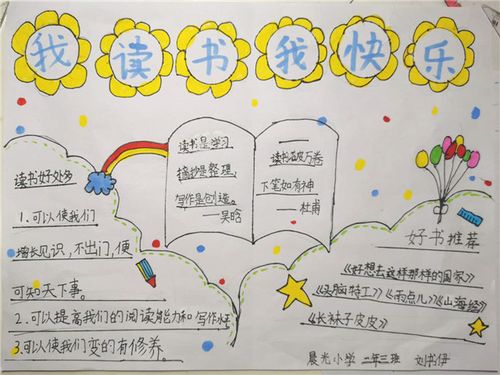 我读书我快乐
读书好处多
1.可以使我们
增长见识，不出门，便
可知天下事。
2.可以提高我们的阅读能力和写作
3.可以使我们变的有修养。
读书是学习，
摘抄是整理，
写作是创造。
——吴晗
读书破万卷
下笔如有神
——杜甫
好书推荐
《好想去这样那样的国家》
《头脑特工》《雨点儿》《山海经》
《长袜子皮皮》
晨光小学 二年三班 刘书伊